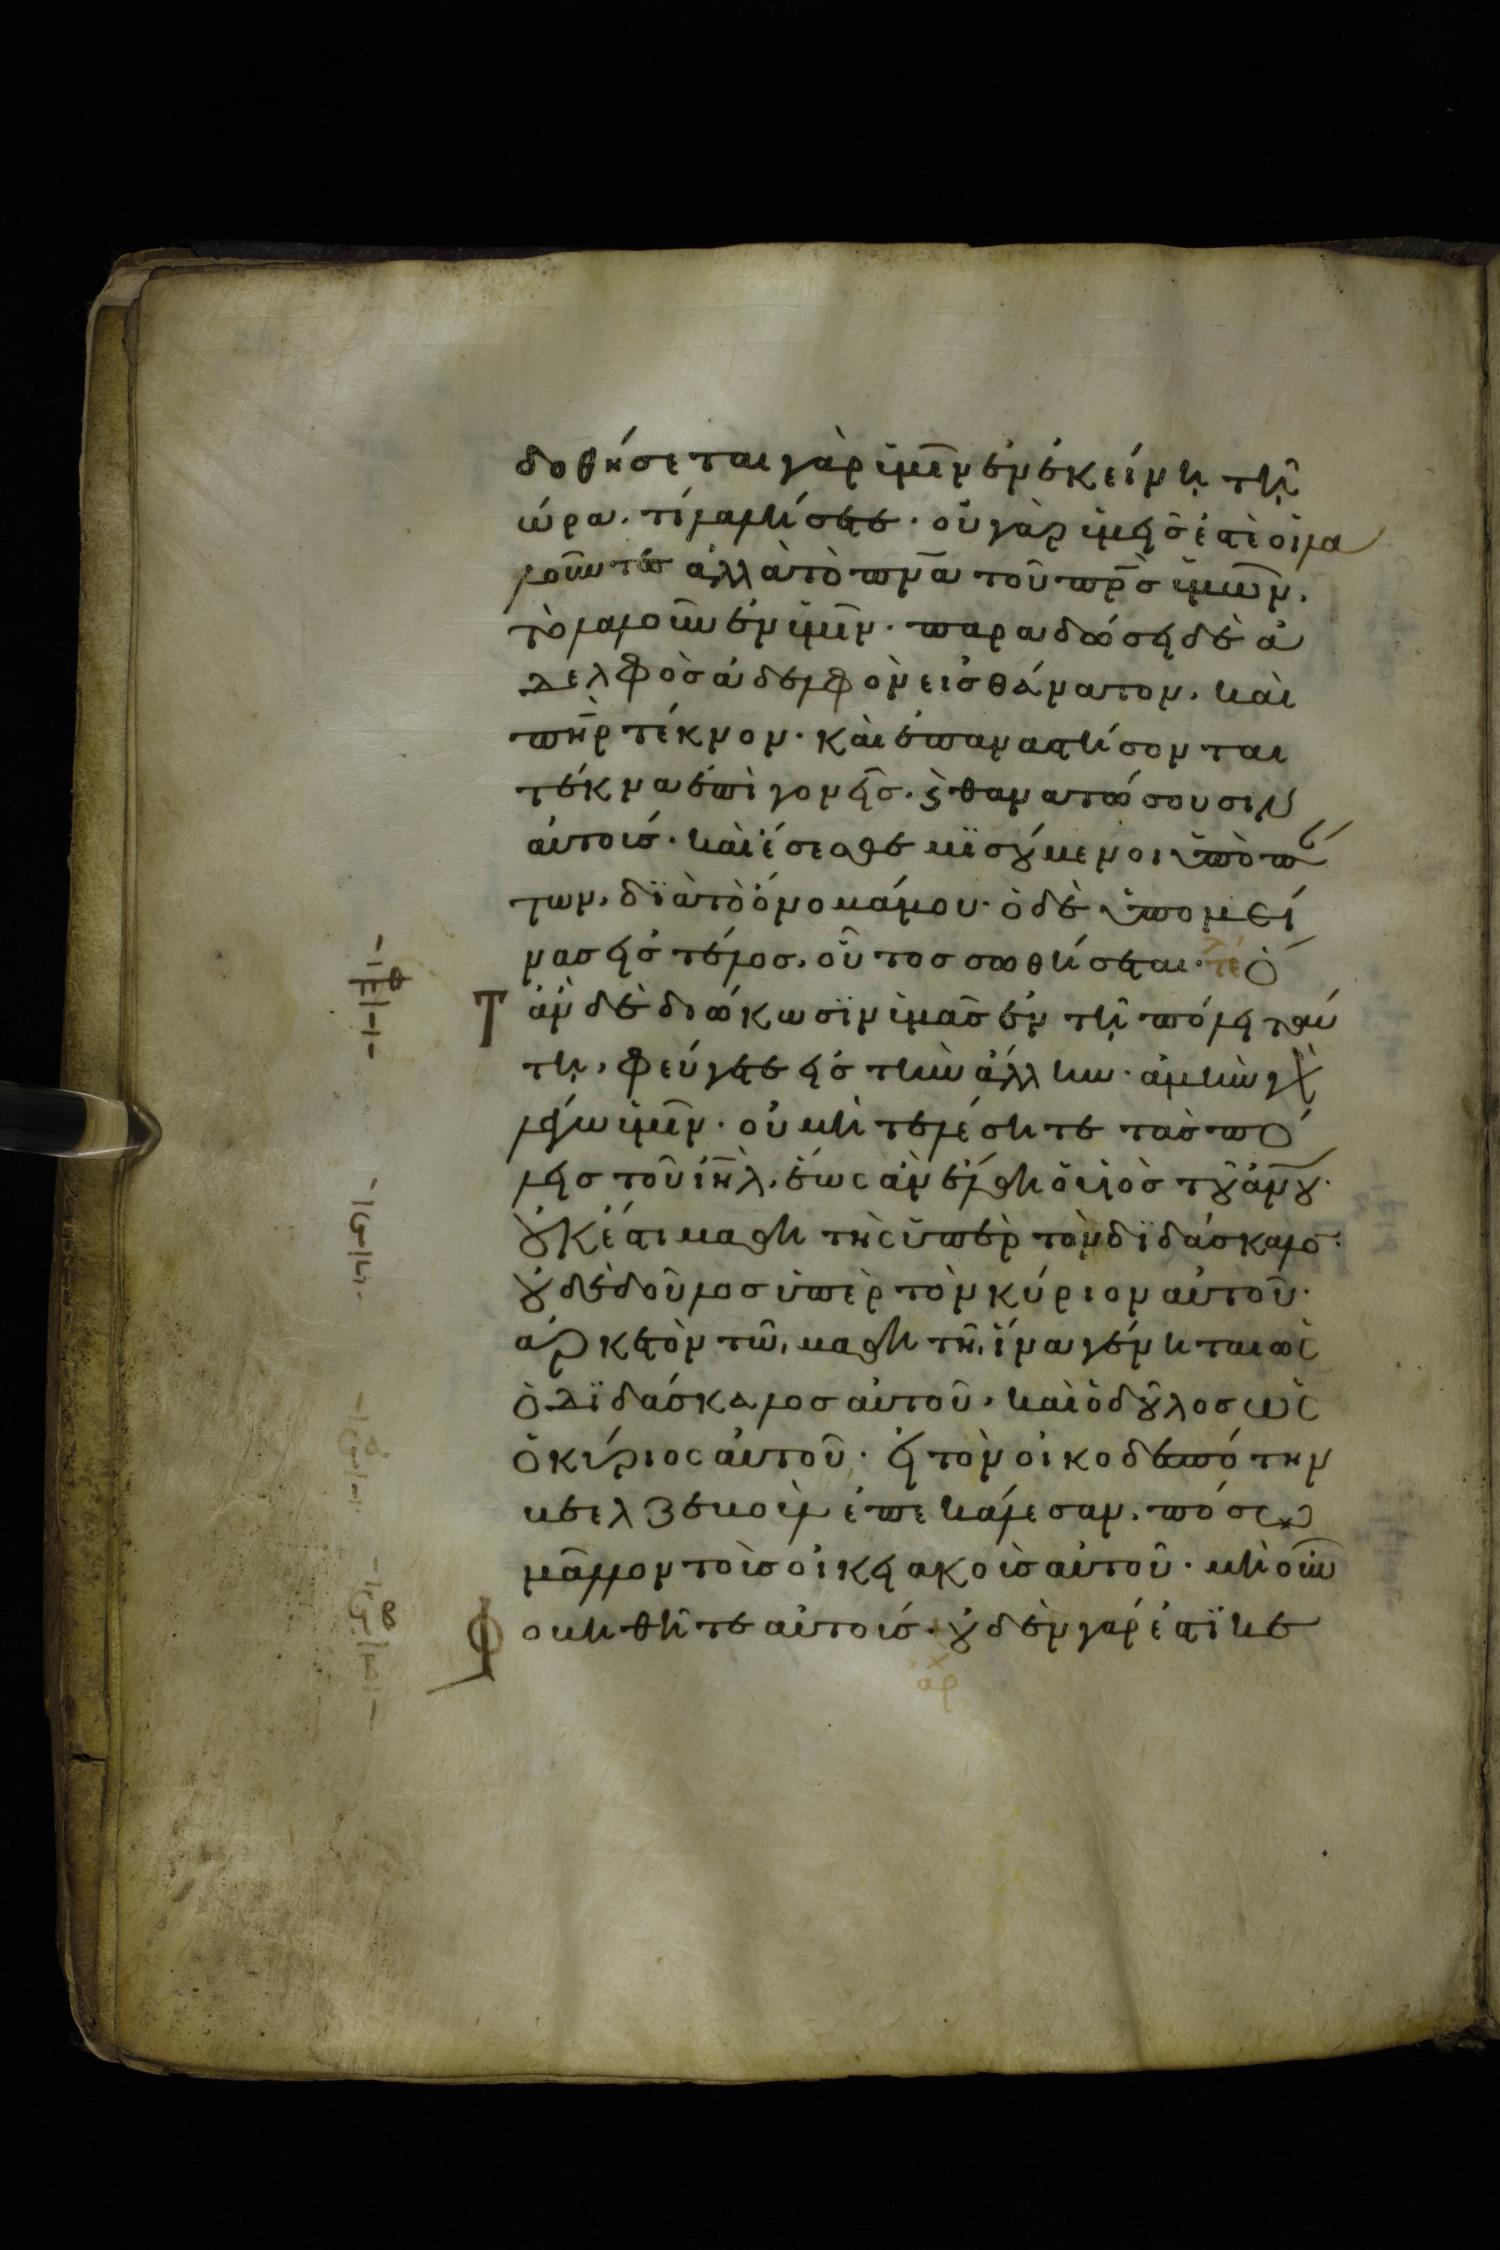 δοθήσεται γὰρ ὑμῖν ἐν ἐκείνη τῆ
ὥρα. τί λαλήσετε· οὐ γὰρ ὑμεῖς ἐστὲ οἱ λα
λοῦντες ἀλλὰ τὸ πν̅α τοῦ πρ̅ς ὑμῶν.
τὸ λαλοῦν ἐν ὑμῖν· παραδώσει δὲ ἀ
δελφὸς ἀδελφὸν εἰς θάνατον. καὶ
πη̅ρ τέκνον· καὶ ἐπαναστήσονται
τέκνα ἐπὶ γονεῖς. ϛ̀ θανατώσουσιν
αὐτούς· καὶ ἔσεσθε μϊσούμενοι ὑπὸ πάν
των, δϊὰ τὸ ὄνομά μου· ὁ δὲ ὑπομεί
νας εἰς τέλος, οὗτος σωθήσεται· τέ Ὅ
Τ ἂν δὲ διώκωσϊν ὑμᾶς ἐν τῆ πόλει ταύ
τη, φεύγετε εἰς τὴν ἄλλην· ἀμὴν γὰρ
λέγω ὑμῖν· οὐ μὴ τελέσητε τὰς πό
λεις τοῦ ἰη̅λ. ἕως ἂν ἔλθη ὁ υἱὸς τοῦ ἀν̅ου·
οὐκ ἔστι μαθητὴς ὑπὲρ τὸν δϊδάσκαλον·
οὐδὲ δοῦλος ὑπὲρ τὸν κύριον αὐτοῦ·
ἀρκετὸν τῶ μαθητῆ, ἵνα γένηται ὡς
ὁ δϊδάσκαλος αὐτοῦ, καὶ ὁ δοῦλος ὡς
ὁ κύριος αὐτοῦ· εἰ τὸν οἰκοδεσπότην
βεελζεβοὺλ ἐπεκάλεσαν. πόσω
μᾶλλον τοὺς οἰκειακοὺς αὐτοῦ· μὴ οὖν
Φ οβηθῆτε αὐτούς· οὐδὲν γάρ ἐστϊ κε